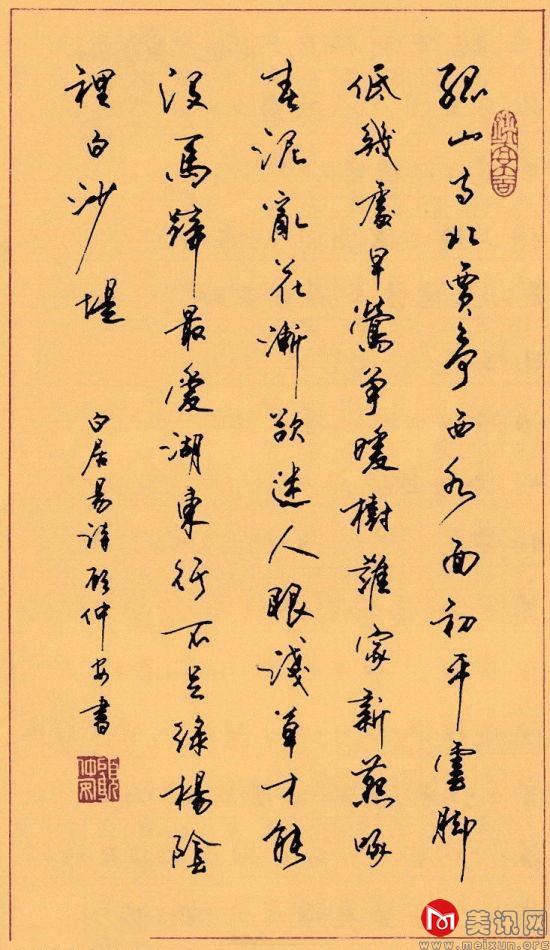 孤山寺北賈亭西水面初平雲脚
低幾處早鶯爭暖樹誰家新燕啄
春泥亂花漸欲迷人眼淺草才能
沒馬蹄最愛湖東行不足綠楊陰
裡白沙堤
白居易詩顧仲安書
顧仲安
美讯网
www.meixun.org